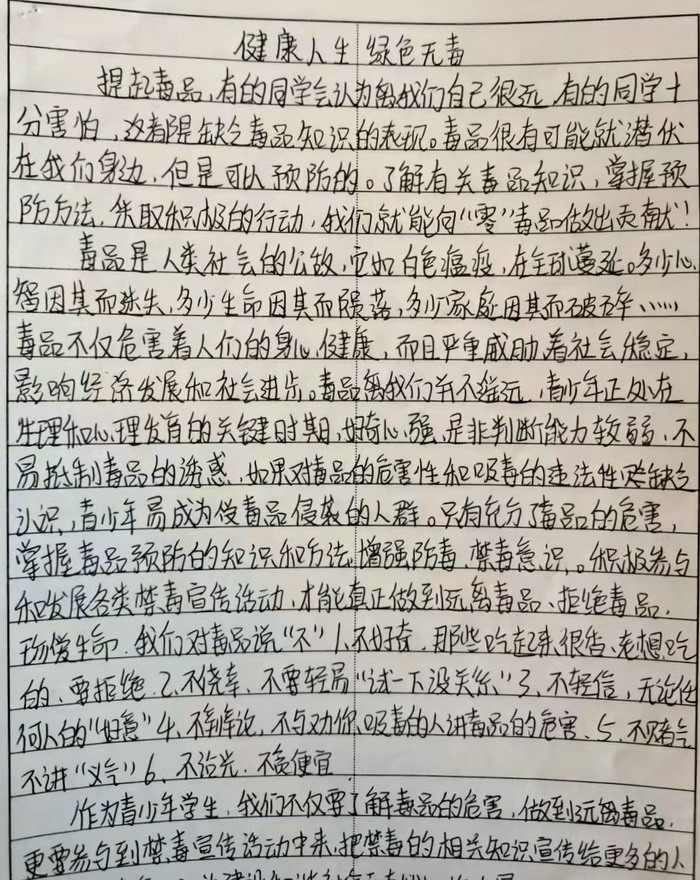 健康人生 绿色无毒
提起毒品,有的同学会认为离我们自己很远,有的同学十
分害怕,这都是缺乏毒品知识的表现。毒品很有可能就潜伏
在我们身边,但是可以预防的。了解有关毒品知识,掌握预
防方法,采取积极的行动,我们就能向“零”毒品做出贡献!
毒品是人类社会的公敌,它如白色瘟疫,在全球蔓延。多少心
智因其而迷失,多少生命因其而陨落,多少家庭因其而破碎……
毒品不仅危害着人们的身心健康,而且严重威胁着社会稳定,
影响经济发展和社会进步。毒品离我们并不遥远,青少年正处在
生理和心理发育的关键时期,好奇心强,是非判断能力较弱、不
易抵制毒品的诱惑,如果对毒品的危害性和吸毒的违法性缺乏
认识,青少年易成为受毒品侵袭的人群。只有充分了毒品的危害,
掌握毒品预防的知识和方法,增强防毒、禁毒意识,。积极参与
和发展各类禁毒宣传活动,才能真正做到远离毒品、拒绝毒品,
珍爱生命,我们对毒品说“不”1、不好奇,那些吃起来很香、老想吃
的,要拒绝.2、不侥幸,不要轻易“试一下没关系”3、不轻信,无论任
何人的“好意”4、不争论,不与劝你吸毒的人讲毒品的危害.5、不赌气
不讲“义气”6、不沾光,不贪便宜
作为青少年学生,我们不仅要了解毒品的危害,做到远离毒品,
更要参与到禁毒宣传活动中来,把禁毒的相关知识宣传给更多的人